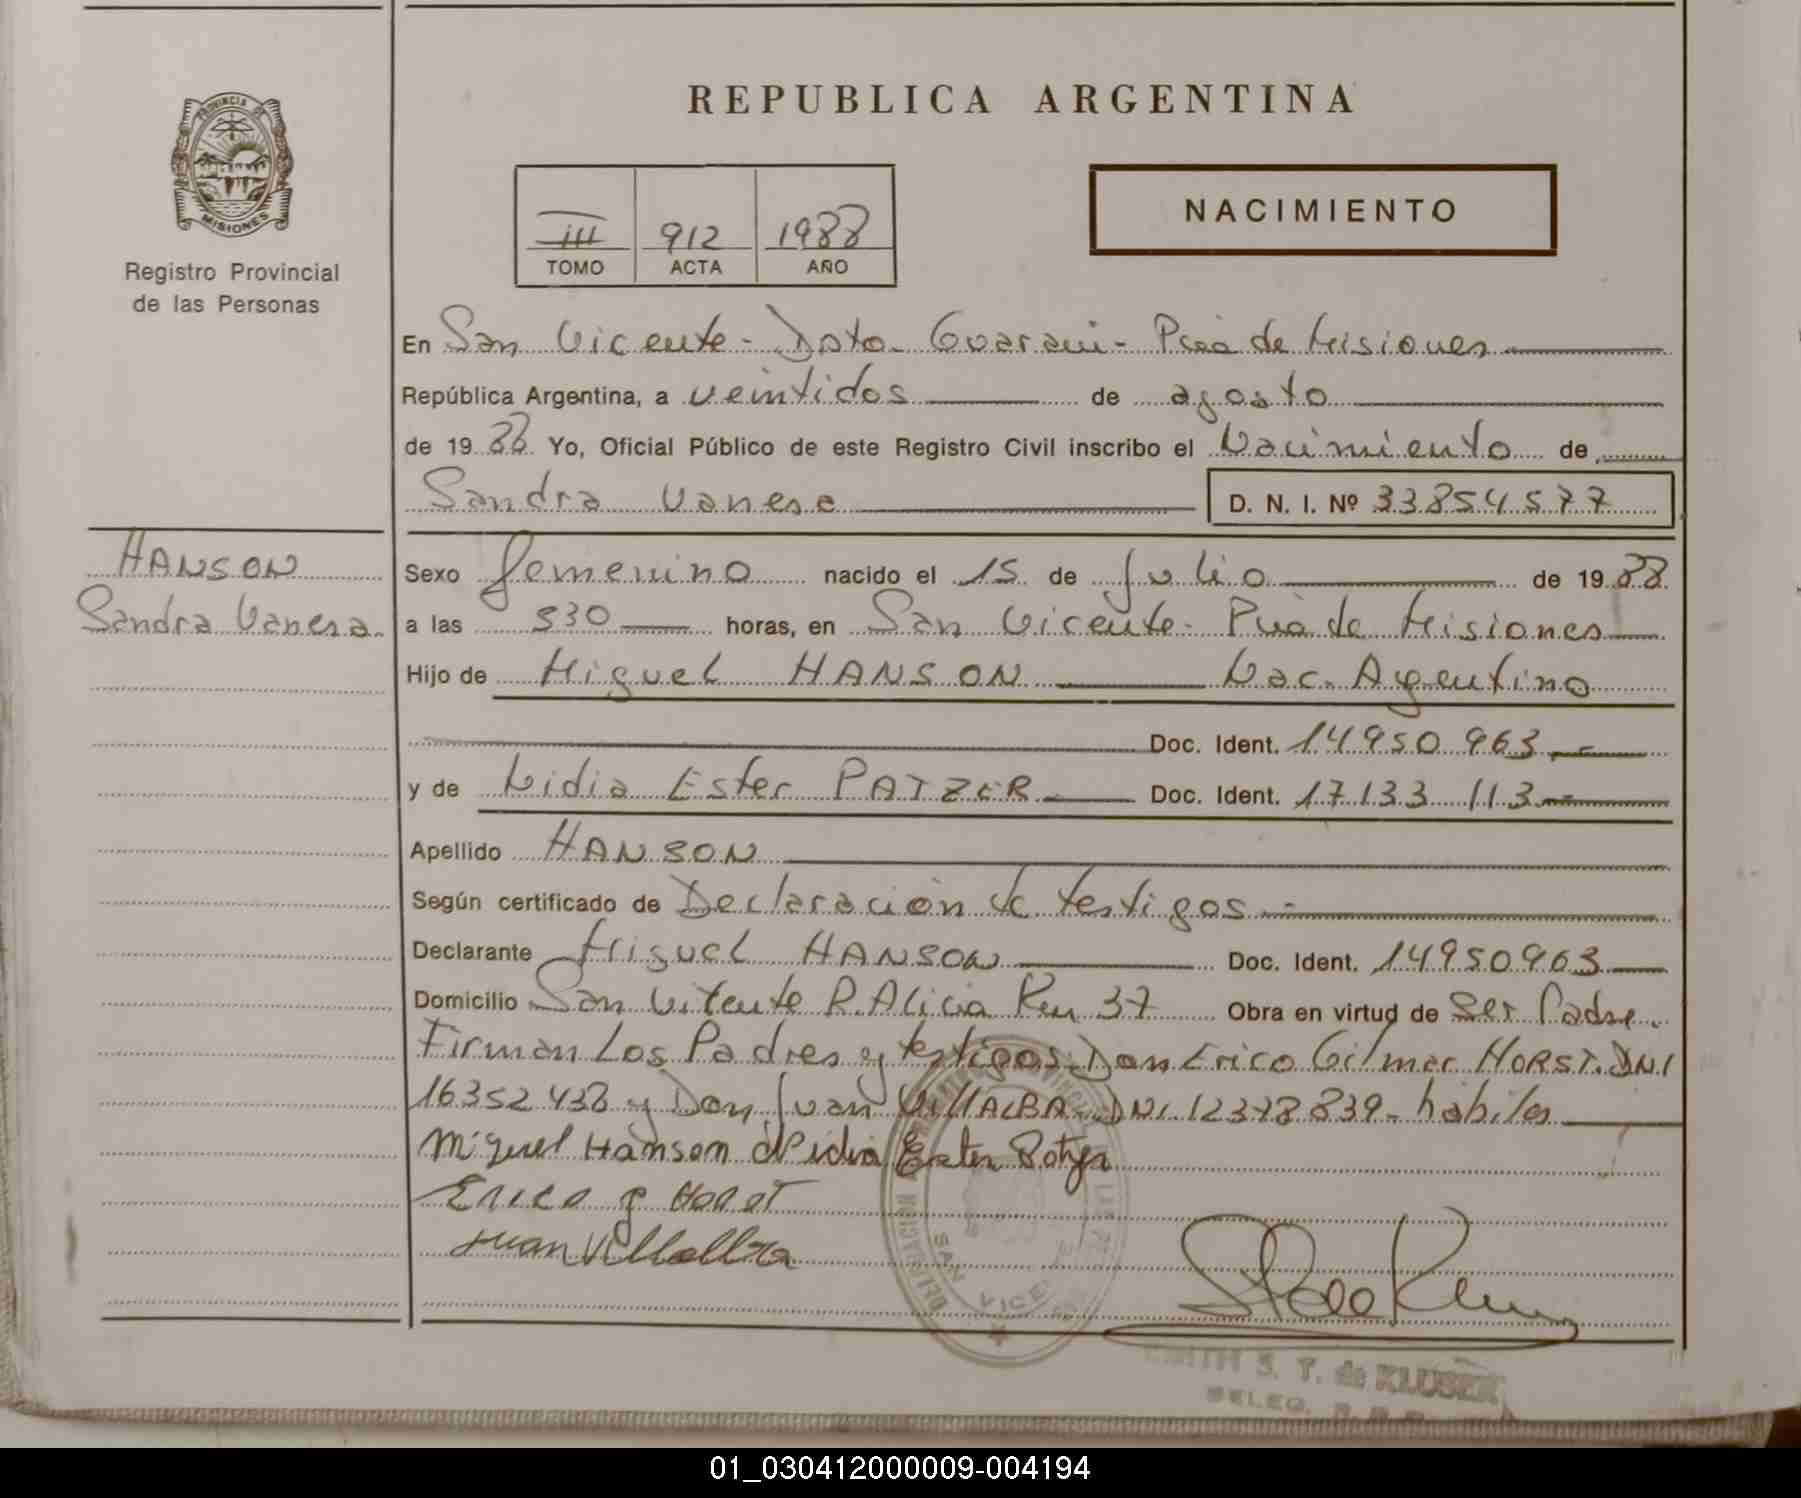 REPUBLICA ARGENTINA
PROVINCIA DE
MISIONES
Registro Provincial
de las Personas
III 912 1988
TOMO ACTA AÑO
NACIMIENTO
En San Vicente - Dpto. Guarani - Pcia de Misiones
República Argentina, a veintidos de agosto
de 19 88 Yo, Oficial Público de este Registro Civil inscribo el Nacimiento de
Sandra Vanesa D. N. I. Nº 33854577
HANSON
Sandra Vanesa
Sexo femenino nacido el 15 de Julio de 19 88
a las 530 horas, en San Vicente - Pcia de Misiones
Hijo de Miguel HANSON Nac. Argentino
Doc. Ident. 14950 963
y de Lidia Ester PATZER Doc. Ident. 17133 113
Apellido HANSON
Según certificado de Declaración de testigos
Declarante Miguel HANSON Doc. Ident. 14950963
Domicilio San Vicente P. Alicia Km 37 Obra en virtud de ser Padre.
Firman Los Padres y testigos Don Erico Gilmar HORST. DNI
16352 438 y Don Juan VillALBA - DNI 12378839 - habiles
Miguel Hanson Lidia Ester
Erico g Horst
Juan Villalba
SAN VICENTE
S. T. de KLUSER
DELEG.
01_030412000009-004194